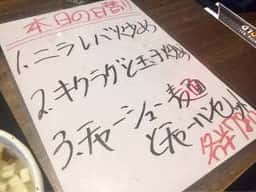 本日の日替り
1.ニラレバ炒め
2.キクラゲと玉子炒め
3.チャーシュー麺
とチャーハンセット